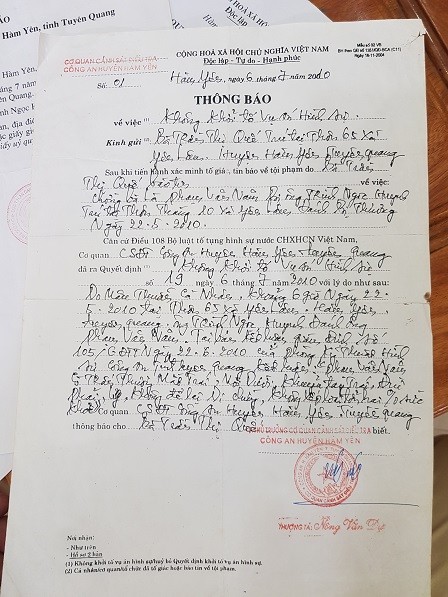 Hàm Yên, tỉnh Tuyên Quang
CỘNG HOÀ XÃ HỘI CHỦ NGHĨA VIỆT NAM
Độc lập - Tự do - Hạnh phúc
CƠ QUAN CẢNH SÁT ĐIỀU TRA
CÔNG AN HUYỆN HÀM YÊN
Số: 01
Hàm Yên, ngày 6 tháng 7 năm 2010
THÔNG BÁO
về việc Không khởi tố Vụ án Hình sự
Kính gửi: Bà Trần Thị Quê Trú tại Thôn 65 Xã
Yên Lâm. Huyện Hàm Yên Tuyên Quang
Sau khi tiến hành xác minh tố giác, tin báo về tội phạm do Bà Trần
Thị Quê báo tin về việc:
chồng bà là Phan Văn Năm bị ông Trịnh Ngọc Huynh
Trú tại Thôn Thăng 10 Xã Yên Lâm Đánh Bị Thương
Ngày 22.5.2010.
Căn cứ Điều 108 Bộ luật tố tụng hình sự nước CHXHCN Việt Nam,
Cơ quan CSĐT Công An Huyện Hàm Yên - Tuyên Quang
đã ra Quyết định Không khởi tố Vụ án Hình sự
số 19 ngày 6 tháng 7 năm 2010 với lý do như sau:
Do Mâu Thuẫn Cá Nhân, Khoảng 6 giờ Ngày 22
5.2010 tại Thôn 65 Xã Yên Lâm. Hàm Yên,
Tuyên Quang. ông Trịnh Ngọc Huynh Đánh ông
Phan Văn Năm. Tại bản kết luận giám định số
105/GĐPT Ngày 22.6.2010 của phòng kỹ Thuật Hình
sự Công an Tỉnh Tuyên Quang kết luận: Phan Văn Năm
Cơ quan CSĐT Công An Huyện Hàm Yên Tuyên Quang
thông báo cho Bà Trần Thị Quê biết.
THỦ TRƯỞNG CƠ QUAN CẢNH SÁT ĐIỀU TRA
CÔNG AN HUYỆN HÀM YÊN
THƯỢNG TÁ: Nông Văn
Nơi nhận:
- Như trên
- Hồ sơ 2 bản
(1) Không khởi tố vụ án hình sự/huỷ bỏ Quyết định khởi tố vụ án hình sự.
(2) Cá nhân/cơ quan/tổ chức đã tố giác hoặc báo tin về tội phạm.